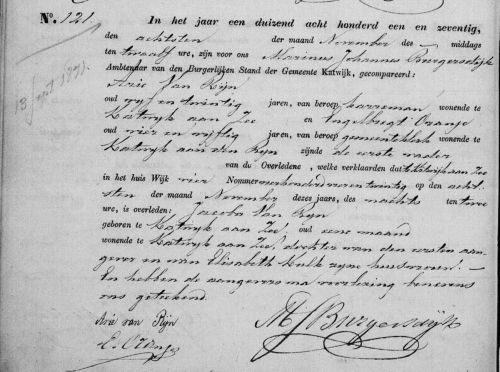 No. 121. In het jaar een duizend acht honderd een en zeventig,
den achtsten der maand November des middags
ten twaalf ure, zijn voor ons Marinus Johannes Burgersdijk
Ambtenaar van den Burgerlijken Stand der Gemeente Katwijk, gecompareerd:
Arie Van Rijn
oud vijf en twintig jaren, van beroep karreman wonende te
Katwijk aan Zee en Engelbregt Oranje
oud vier en vijftig jaren, van beroep gemeenteklerk wonende te
Katwijk aan den Rijn zijnde de eerste vader
van de Overledene, welke verklaarden dat te Katwijk aan Zee
in het huis Wijk vier Nommer vierhonderd vier en twintig op den acht
sten der maand November dezes jaars, des nachts ten twee
ure, is overleden: Jacoba Van Rijn
geboren te Katwijk aan Zee oud eene maand
wonende te Katwijk aan Zee, dochter van den eersten aan-
gever en van Elisabeth Kulk zijne huisvrouw. —
En hebben de aangevers na voorlezing benevens
ons geteekend.
Arie van Rijn
E. Oranje
MJ Burgersdijk